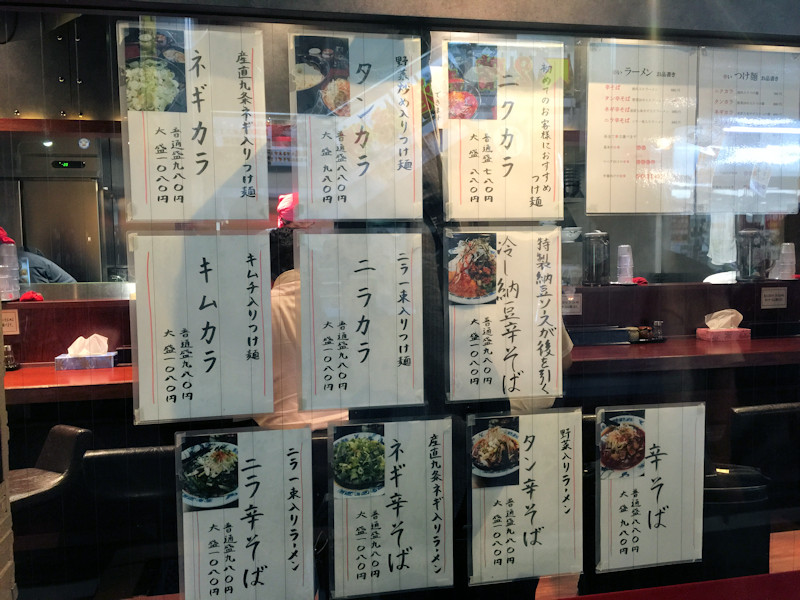 産直九条ネギ入りつけ麺
ネギカラ
普通盛九八〇円
大盛一〇八〇円
野菜炒め入りつけ麺
タンカラ
普通盛八八〇円
大盛九八〇円
初めてのお客様におすすめ
つけ麺
ニクカラ
普通盛七八〇円
大盛八八〇円
ラーメン お品書き
つけ麺 お品書き
キムチ入りつけ麺
キムカラ
普通盛九八〇円
大盛一〇八〇円
ニラ一束入りつけ麺
ニラカラ
普通盛九八〇円
大盛一〇八〇円
特製納豆ソースが後を引く
冷し納豆辛そば
普通盛九八〇円
大盛一〇八〇円
ニラ一束入りラーメン
ニラ辛そば
普通盛九八〇円
大盛一〇八〇円
産直九条ネギ入りラーメン
ネギ辛そば
普通盛九八〇円
大盛一〇八〇円
野菜入りラーメン
タン辛そば
普通盛九八〇円
大盛一〇八〇円
辛そば
普通盛八八〇円
大盛九八〇円